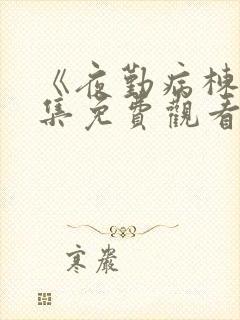 《夜勤病棟
集免費觀看
寒嚴